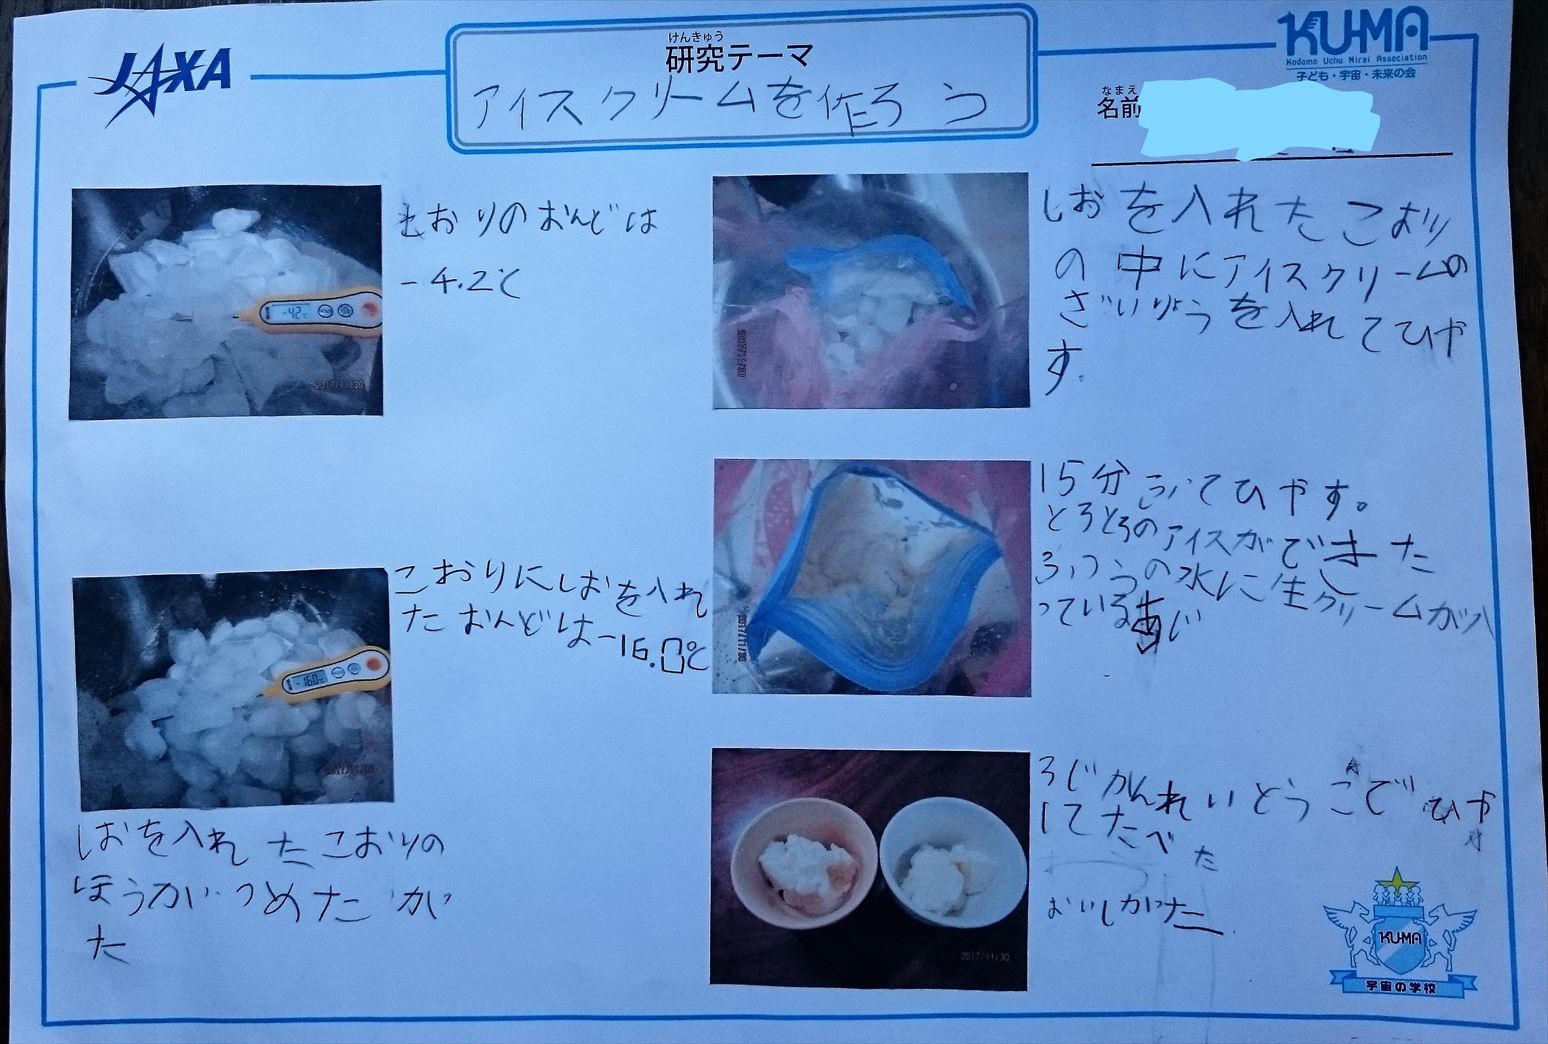 JAXA
けんきゅう
研究テーマ
アイスクリームを作ろう
KU-MA
Kodomo Uchu Mirai Association
子ども・宇宙・未来の会
なまえ
名前
こおりのおんどは
-4.2℃
-4.2℃
2017/11/30
こおりにしおを入れ
たおんどは-16.0℃
-16.0℃
2017/11/30
しおを入れたこおりの
ほうがつめたか
た
しおを入れたこおり
の中にアイスクリームの
ざいりょうを入れてひや
す。
2017/11/30
15分ふってひやす。
とろとろのアイスができた
ふつうの氷に生クリームが入
っているあじ
2017/11/30
3じかんれいとうこでひや
してたべた
おいしかた
2017/11/30
KU-MA
宇宙の学校